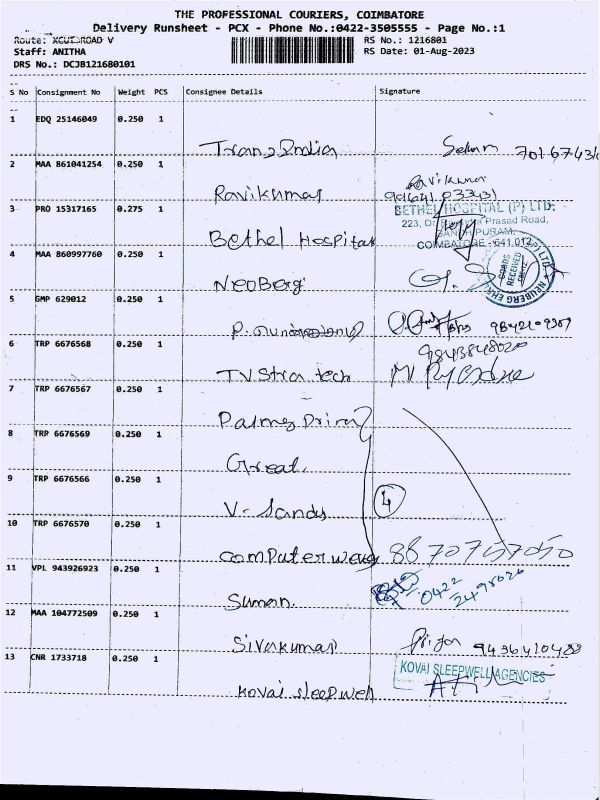 THE PROFESSIONAL COURIERS, COIMBATORE
Delivery Runsheet - PCX - Phone No.:0422-3505555 - Page No.:1
Route: ROAD V RS No.: 1216801
Staff: ANITHA RS Date: 01-Aug-2023
DRS No.: DCJB121680101
S No Consignment No Weight PCS Consignee Details Signature
1 EDQ 25146049 0.250 1
Trans India Selvam
2 MAA 861041254 0.250 1
Ravikumar Ravikumar
3 PRO 15317165 0.275 1
BETHEL HOSPITAL (P) LTD.
223, Prasad Road,
PURAM,
COIMBATORE - 641 012
Bethel Hospital
4 MAA 860997760 0.250 1
NeoBerg
GOODS RECEIVED
5 GMP 629012 0.250 1
P.
6 TRP 6676568 0.250 1
9843848020
TVStra tech
7 TRP 6676567 0.250 1
8 TRP 6676569 0.250 1
Great
9 TRP 6676566 0.250 1
V- Sandy 4
10 TRP 6676570 0.250 1
Computer
11 VPL 943926923 0.250 1
0422
Suman.
12 MAA 104772509 0.250 1
Sivakumar
13 CNR 1733718 0.250 1
KOVAI SLEEPWELL AGENCIES
Kovai sleepwell